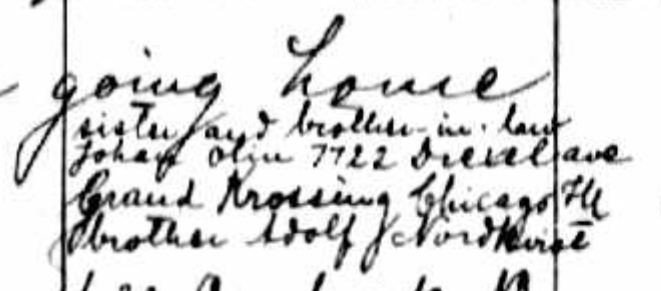 going home
sister and brother-in-law
Johan Olin 7722 Drexel ave
Grand Krossing Chicago Ill
brother Adolf Nordkvist